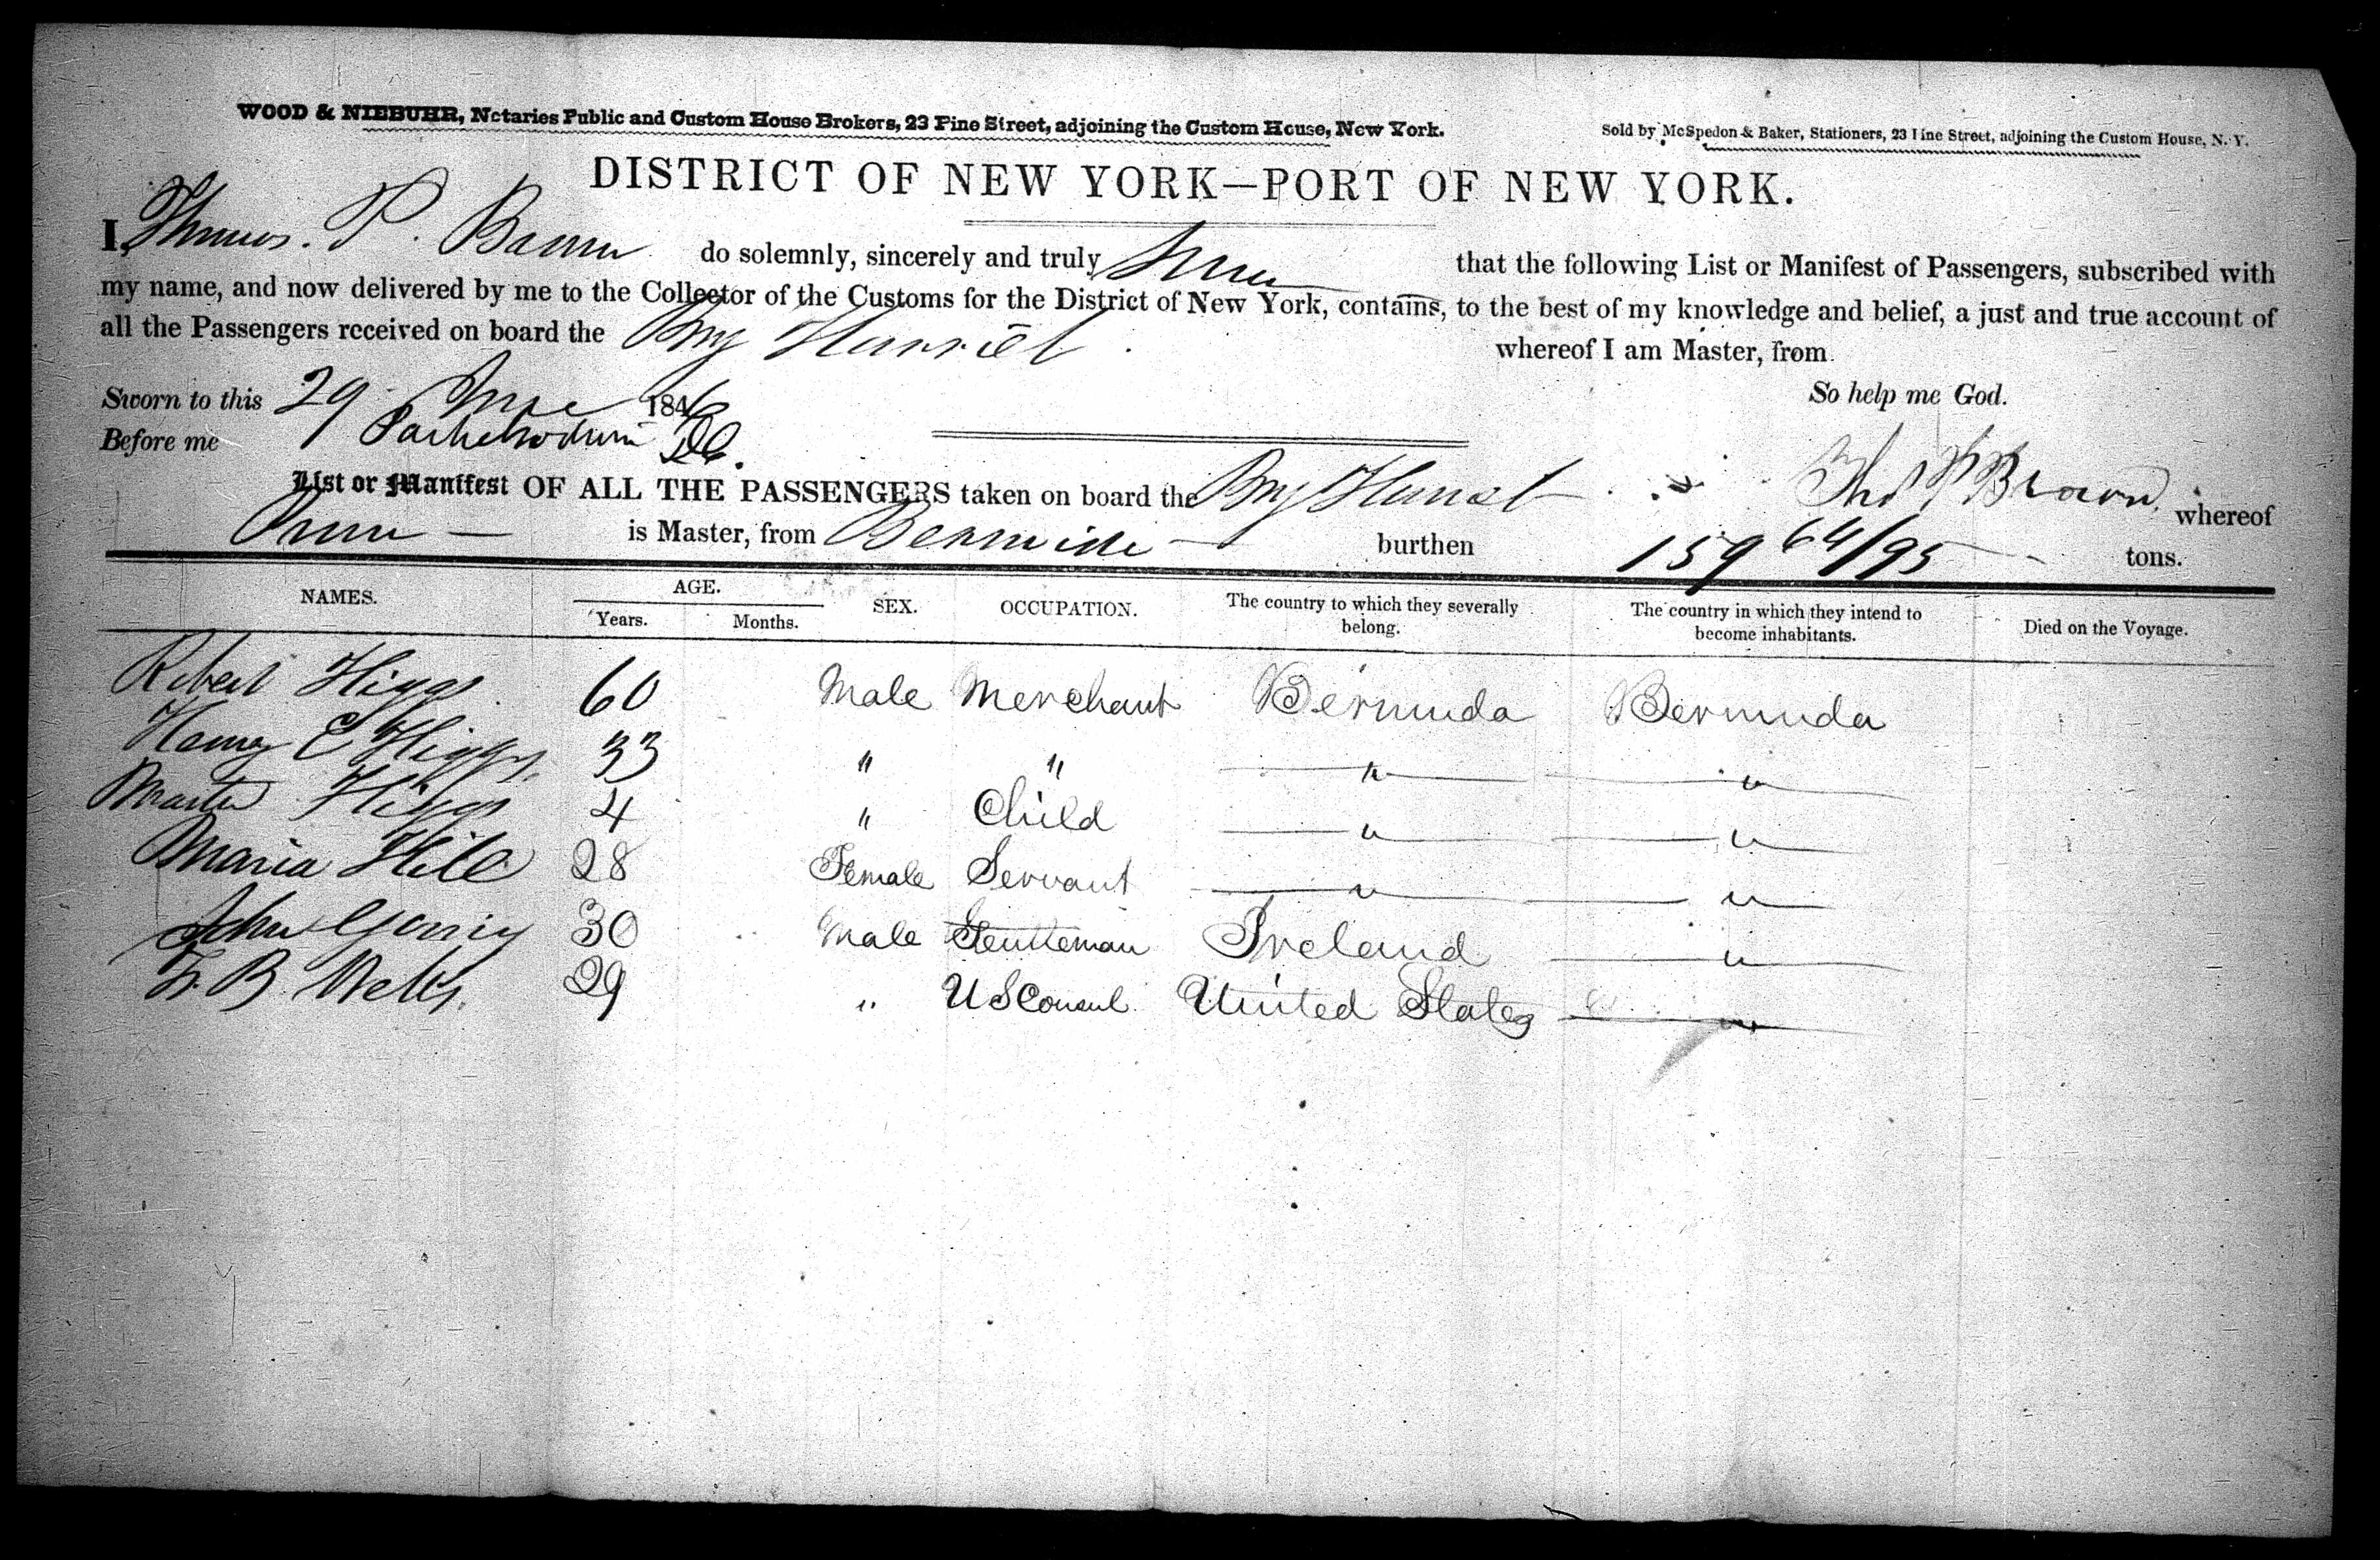 WOOD & NIEBUHR, Notaries Public and Custom House Brokers, 23 Pine Street, adjoining the Custom House, New York.
Sold by McSpedon & Baker, Stationers, 23 Pine Street, adjoining the Custom House, N. Y.
DISTRICT OF NEW YORK—PORT OF NEW YORK.
I, Thomas. P. Brown do solemnly, sincerely and truly Swear that the following List or Manifest of Passengers, subscribed with
my name, and now delivered by me to the Collector of the Customs for the District of New York, contains, to the best of my knowledge and belief, a just and true account of
all the Passengers received on board the Brig Harriet whereof I am Master, from
Sworn to this 29 June 1846 So help me God.
Before me
Thos P Brown
List or Manifest OF ALL THE PASSENGERS taken on board the Brig Harriet whereof
is Master, from Bermuda burthen 159 64/95 tons.
NAMES. AGE. SEX. OCCUPATION. The country to which they severally belong. The country in which they intend to become inhabitants. Died on the Voyage.
Years. Months.
Robert Higgs 60 Male Merchant Bermuda Bermuda
Henry E Higgs. 33 " " " "
Master Higgs 4 " Child " "
Maria Hill 28 Female Servant " "
John 30 Male Gentleman Ireland "
B. Wells. 29 " US Consul United States "